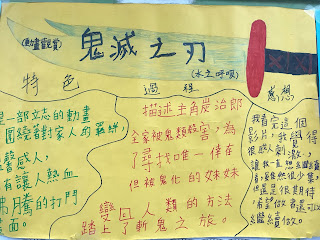 (動畫觀賞)
鬼滅之刃
(水之呼吸)
特色
是一部立志的動畫
圍繞著對家人的羈絆,
馨感人,
有讓人熱血
沸騰的打鬥
面。
過程
描述主角炭治郎
全家被鬼類殺害,為
了尋找唯一倖存
但被鬼化的妹妹
變回人類的方法
踏上了斬鬼之旅。
感想
我看完這個
影片,我覺得
很感人刺激,
讓我一直想繼續
看,雖然很少集,
但還是很期待
,希望做者還可以
繼續做。